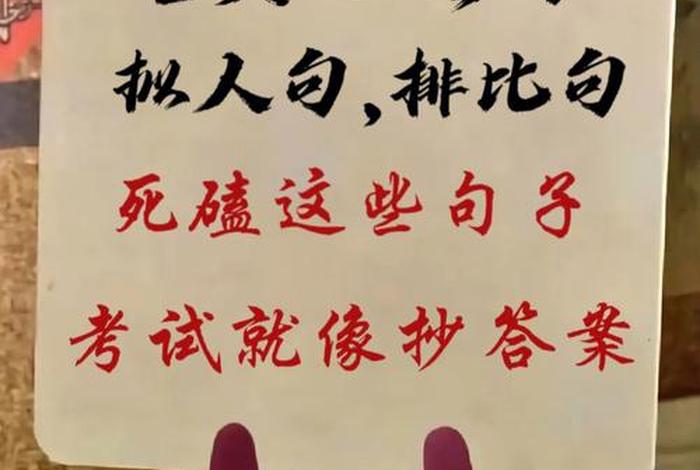 拟人句,排比句
死磕这些句子
考试就像抄答案